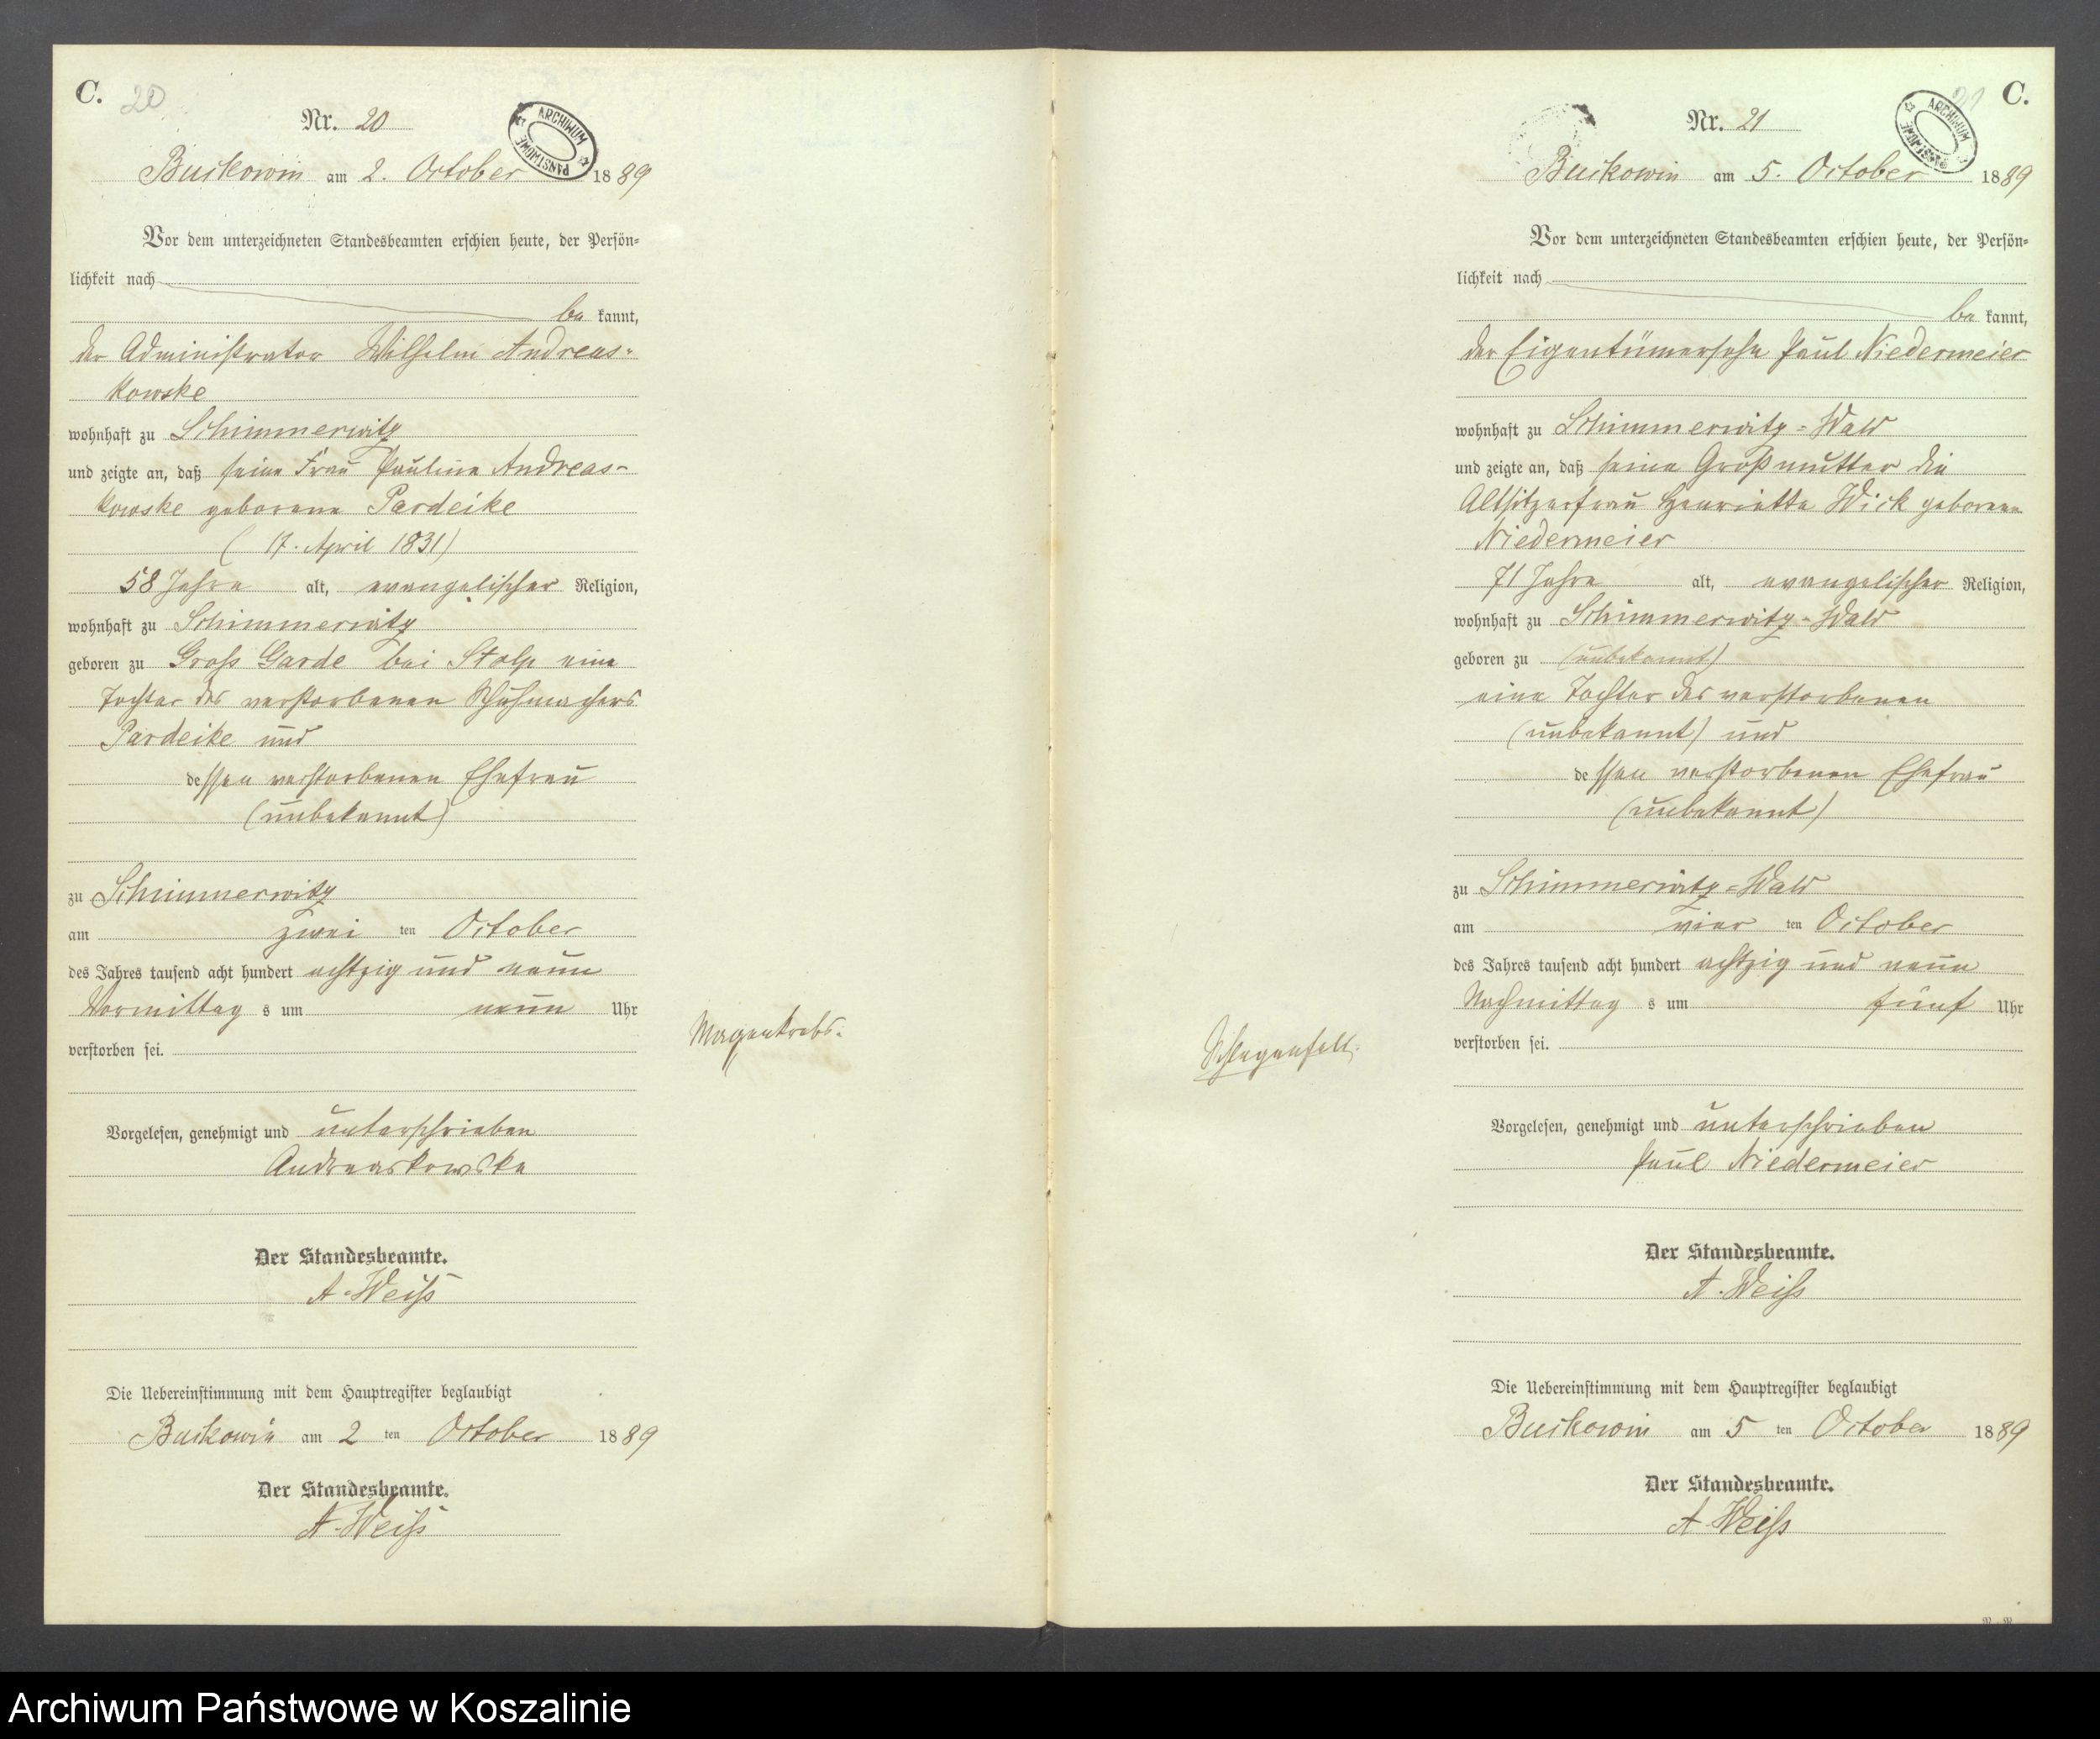 C. 20
Nr. 20
ARCHIWUM PAŃSTWOWE
Buckowin am 2. October 1889
Vor dem unterzeichneten Standesbeamten erschien heute, der Persön=
lichkeit nach
be kannt,
der Administrator Wilhelm Andreas-
kowske
wohnhaft zu Schimmerwitz
und zeigte an, daß seine Frau Pauline Andreas-
kowske geborene Pardeike
( 17. April 1831)
58 Jahre alt, evangelischer Religion,
wohnhaft zu Schimmerwitz
geboren zu Gross Garde bei Stolp eine
Tochter des verstorbenen Schuhmachers
Pardeike und
dessen verstorbenen Ehefrau
(unbekannt)
zu Schimmerwitz
am zwei ten October
des Jahres tausend acht hundert achtzig und neun
Vormittag s um neun Uhr
verstorben sei.
Magenkrebs.
Vorgelesen, genehmigt und unterschrieben
Andreaskowske
Der Standesbeamte.
A. Weiß
Die Uebereinstimmung mit dem Hauptregister beglaubigt
Buckowin am 2 ten October 1889
Der Standesbeamte.
A. Weiß
C.
Nr. 21
ARCHIWUM PAŃSTWOWE
Buckowin am 5. October 1889
Vor dem unterzeichneten Standesbeamten erschien heute, der Persön=
lichkeit nach
be kannt,
der Eigentümersohn Paul Niedermeier
wohnhaft zu Schimmerwitz=Wald
und zeigte an, daß seine Großmutter die
Altsitzerfrau Henriette Wick geborene
Niedermeier
71 Jahre alt, evangelischer Religion,
wohnhaft zu Schimmerwitz=Wald
geboren zu (unbekannt)
eine Tochter des verstorbenen
(unbekannt) und
dessen verstorbenen Ehefrau
(unbekannt)
zu Schimmerwitz=Wald
am vier ten October
des Jahres tausend acht hundert achtzig und neun
Nachmittag s um fünf Uhr
verstorben sei.
Schlaganfall.
Vorgelesen, genehmigt und unterschrieben
Paul Niedermeier
Der Standesbeamte.
A. Weiß
Die Uebereinstimmung mit dem Hauptregister beglaubigt
Buckowin am 5 ten October 1889
Der Standesbeamte.
A. Weiß
Archiwum Państwowe w Koszalinie